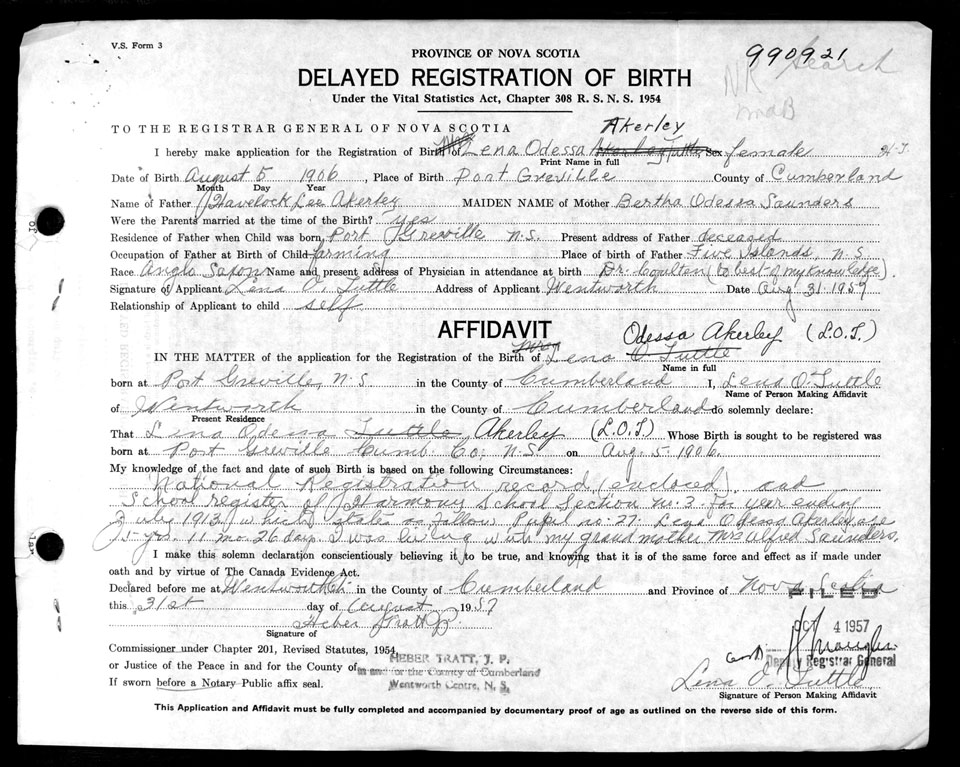 V.S. Form 3
990921
Search
NR
PROVINCE OF NOVA SCOTIA
DELAYED REGISTRATION OF BIRTH
Under the Vital Statistics Act, Chapter 308 R. S. N. S. 1954
TO THE REGISTRAR GENERAL OF NOVA SCOTIA
Akerley
I hereby make application for the Registration of Birth of Lena Odessa Sex female
Print Name in full
Date of Birth August 5 1906, Place of Birth Port Greville County of Cumberland
Month Day Year
Name of Father Havelock Lee Akerley MAIDEN NAME of Mother Bertha Odessa Saunders
Were the Parents married at the time of the Birth? Yes
Residence of Father when Child was born, Port Greville N.S. Present address of Father deceased
Occupation of Father at Birth of Child farming Place of birth of Father Five Islands, N.S.
Race Anglo Saxon Name and present address of Physician in attendance at birth Dr. Coulten (to best of my knowledge).
Signature of Applicant Lena O. Tuttle Address of Applicant Wentworth Date Aug 31 1957
Relationship of Applicant to child self
AFFIDAVIT
Odessa Akerley (L.O.T.)
IN THE MATTER of the application for the Registration of the Birth of Lena O Tuttle
Name in full
born at Port Greville, N.S. in the County of Cumberland I, Lena O. Tuttle
Name of Person Making Affidavit
of Wentworth in the County of Cumberland do solemnly declare:
Present Residence
That Lena Odessa Tuttle Akerley (L.O.T) Whose Birth is sought to be registered was
born at Port Greville Cumb. Co. N.S. on Aug. 5. 1906.
My knowledge of the fact and date of such Birth is based on the following Circumstances:
National Registration record (enclosed) and
School register of Harmony School Section no. 3. for year ending
July 1913, which states as follows Pupil no. 27. Lena Odessa Akerley age
5 yrs. 11 mo. 26 days. I was living with my grandmother Mrs Alfred Saunders.
I make this solemn declaration conscientiously believing it to be true, and knowing that it is of the same force and effect as if made under
oath and by virtue of The Canada Evidence Act.
Declared before me at Wentworth in the County of Cumberland and Province of Nova Scotia
FILED
this 31st day of August 1957
OCT 4 1957
Heber Tratt J.P.
Signature of
Deputy Registrar General
Commissioner under Chapter 201, Revised Statutes, 1954,
or Justice of the Peace in and for the County of
If sworn before a Notary Public affix seal.
HEBER TRATT, J. P.
in and for the County of Cumberland
Wentworth Centre, N. S.
Lena O. Tuttle
Signature of Person Making Affidavit
This Application and Affidavit must be fully completed and accompanied by documentary proof of age as outlined on the reverse side of this form.